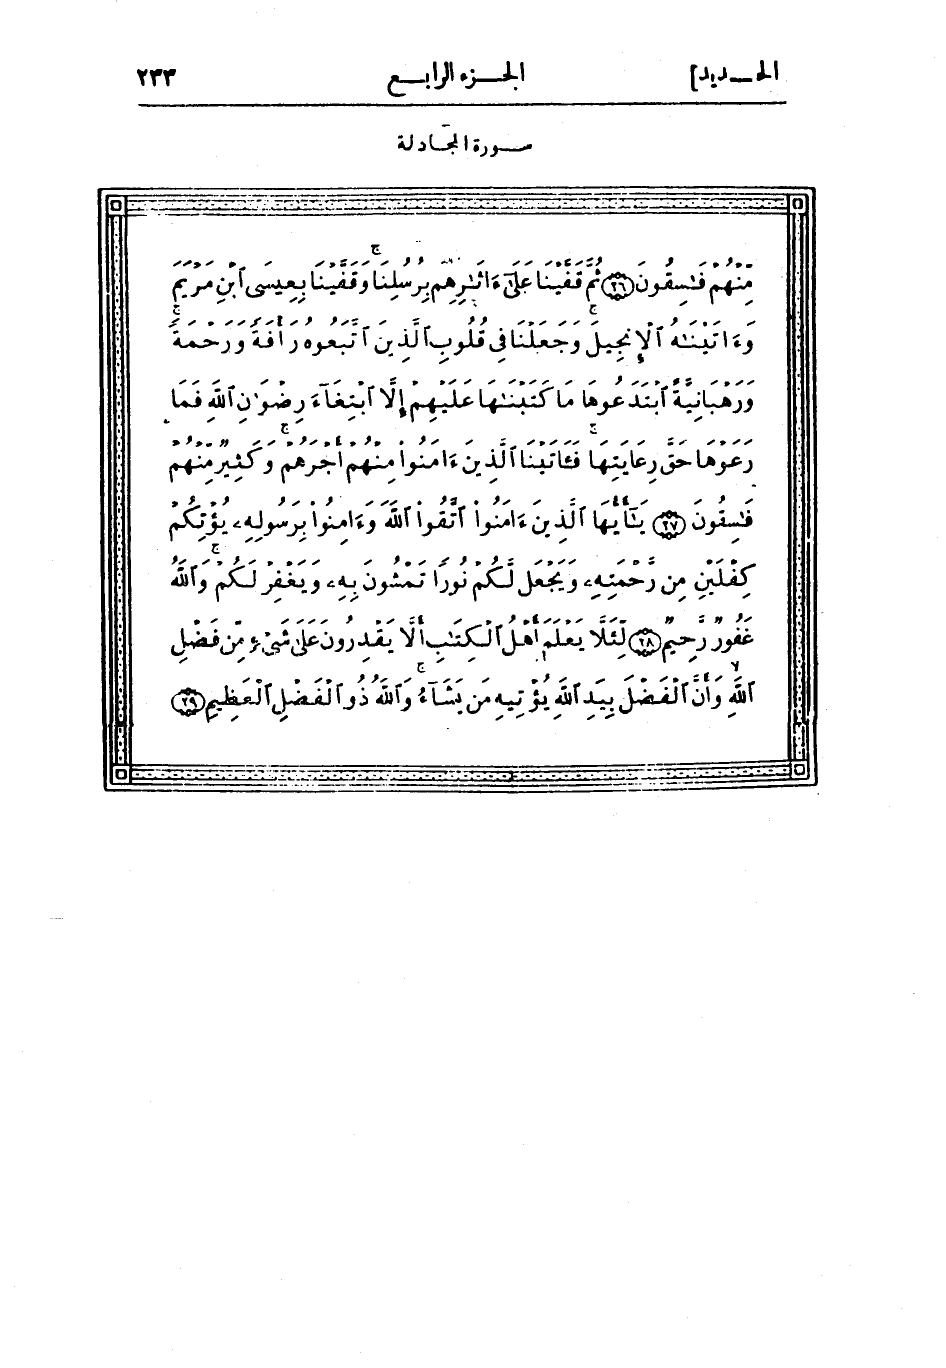 الحـديد] الجـزء الرابـع ٢٣٣
سـورة المجـادلة
مِّنْهُمْ فَٰسِقُونَ ٢٦ ثُمَّ قَفَّيْنَا عَلَىٰٓ ءَاثَٰرِهِم بِرُسُلِنَا وَقَفَّيْنَا بِعِيسَى ٱبْنِ مَرْيَمَ
وَءَاتَيْنَٰهُ ٱلْإِنجِيلَ ۚ وَجَعَلْنَا فِى قُلُوبِ ٱلَّذِينَ ٱتَّبَعُوهُ رَأْفَةً وَرَحْمَةً ۚ
وَرَهْبَانِيَّةً ٱبْتَدَعُوهَا مَا كَتَبْنَٰهَا عَلَيْهِمْ إِلَّا ٱبْتِغَآءَ رِضْوَٰنِ ٱللَّهِ فَمَا
رَعَوْهَا حَقَّ رِعَايَتِهَا ۚ فَـَٔاتَيْنَا ٱلَّذِينَ ءَامَنُوا۟ مِنْهُمْ أَجْرَهُمْ ۚ وَكَثِيرٌ مِّنْهُمْ
فَٰسِقُونَ ٢٧ يَٰٓأَيُّهَا ٱلَّذِينَ ءَامَنُوا۟ ٱتَّقُوا۟ ٱللَّهَ وَءَامِنُوا۟ بِرَسُولِهِۦ يُؤْتِكُمْ
كِفْلَيْنِ مِن رَّحْمَتِهِۦ وَيَجْعَل لَّكُمْ نُورًا تَمْشُونَ بِهِۦ وَيَغْفِرْ لَكُمْ ۚ وَٱللَّهُ
غَفُورٌ رَّحِيمٌ ٢٨ لِّئَلَّا يَعْلَمَ أَهْلُ ٱلْكِتَٰبِ أَلَّا يَقْدِرُونَ عَلَىٰ شَىْءٍ مِّن فَضْلِ
ٱللَّهِ وَأَنَّ ٱلْفَضْلَ بِيَدِ ٱللَّهِ يُؤْتِيهِ مَن يَشَآءُ ۚ وَٱللَّهُ ذُو ٱلْفَضْلِ ٱلْعَظِيمِ ٢٩